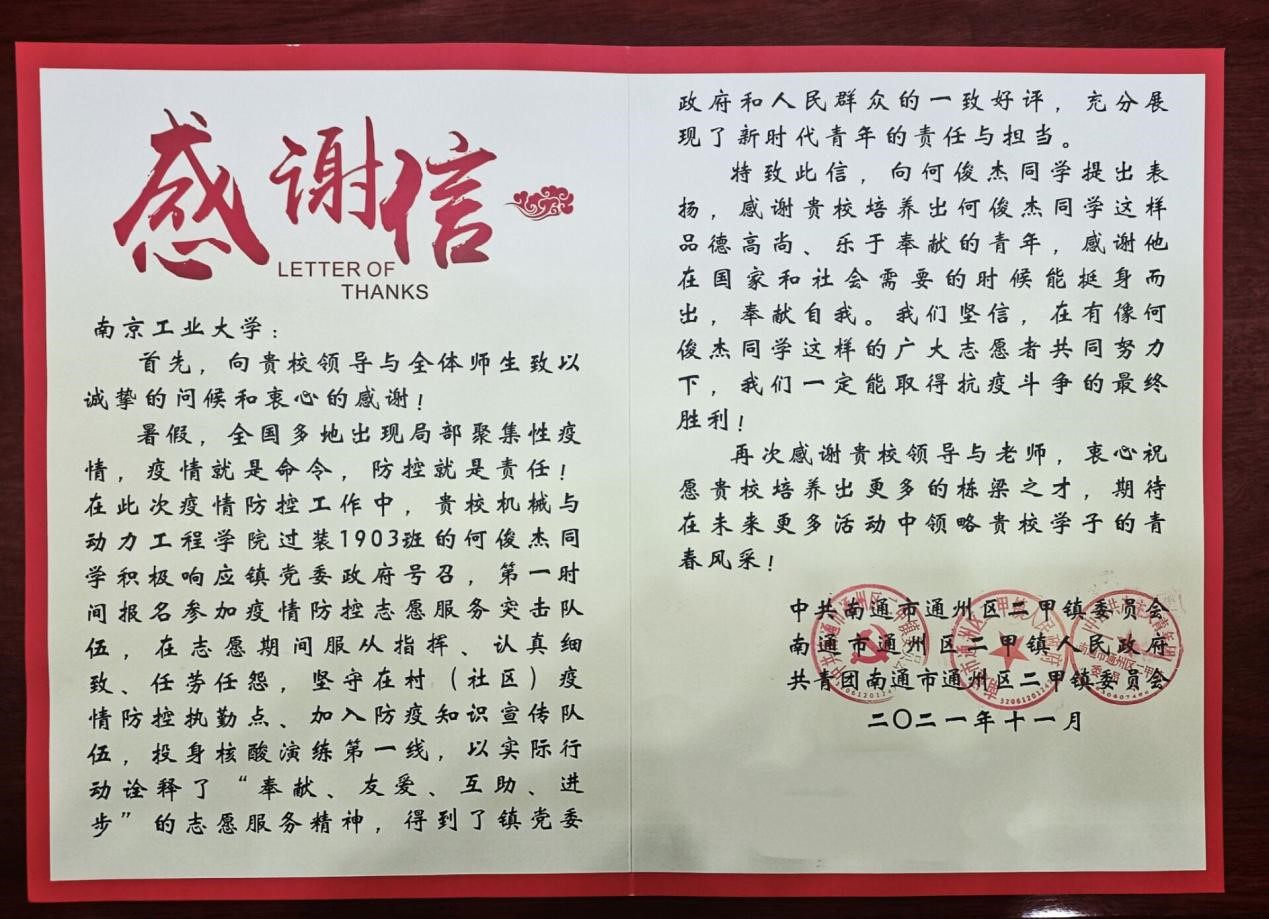 感谢信
LETTER OF
THANKS
南京工业大学：
首先，向贵校领导与全体师生致以
诚挚的问候和衷心的感谢！
暑假，全国多地出现局部聚集性疫
情，疫情就是命令，防控就是责任！
在此次疫情防控工作中，贵校机械与
动力工程学院过装1903班的何俊杰同
学积极响应镇党委政府号召，第一时
间报名参加疫情防控志愿服务突击队
伍，在志愿期间服从指挥、认真细
致、任劳任怨，坚守在村（社区）疫
情防控执勤点、加入防疫知识宣传队
伍，投身核酸演练第一线，以实际行
动诠释了“奉献、友爱、互助、进
步”的志愿服务精神，得到了镇党委
政府和人民群众的一致好评，充分展
现了新时代青年的责任与担当。
特致此信，向何俊杰同学提出表
扬，感谢贵校培养出何俊杰同学这样
品德高尚、乐于奉献的青年，感谢他
在国家和社会需要的时候能挺身而
出，奉献自我。我们坚信，在有像何
俊杰同学这样的广大志愿者共同努力
下，我们一定能取得抗疫斗争的最终
胜利！
再次感谢贵校领导与老师，衷心祝
愿贵校培养出更多的栋梁之才，期待
在未来更多活动中领略贵校学子的青
春风采！
中共南通市通州区二甲镇委员会
南通市通州区二甲镇人民政府
共青团南通市通州区二甲镇委员会
二〇二一年十一月